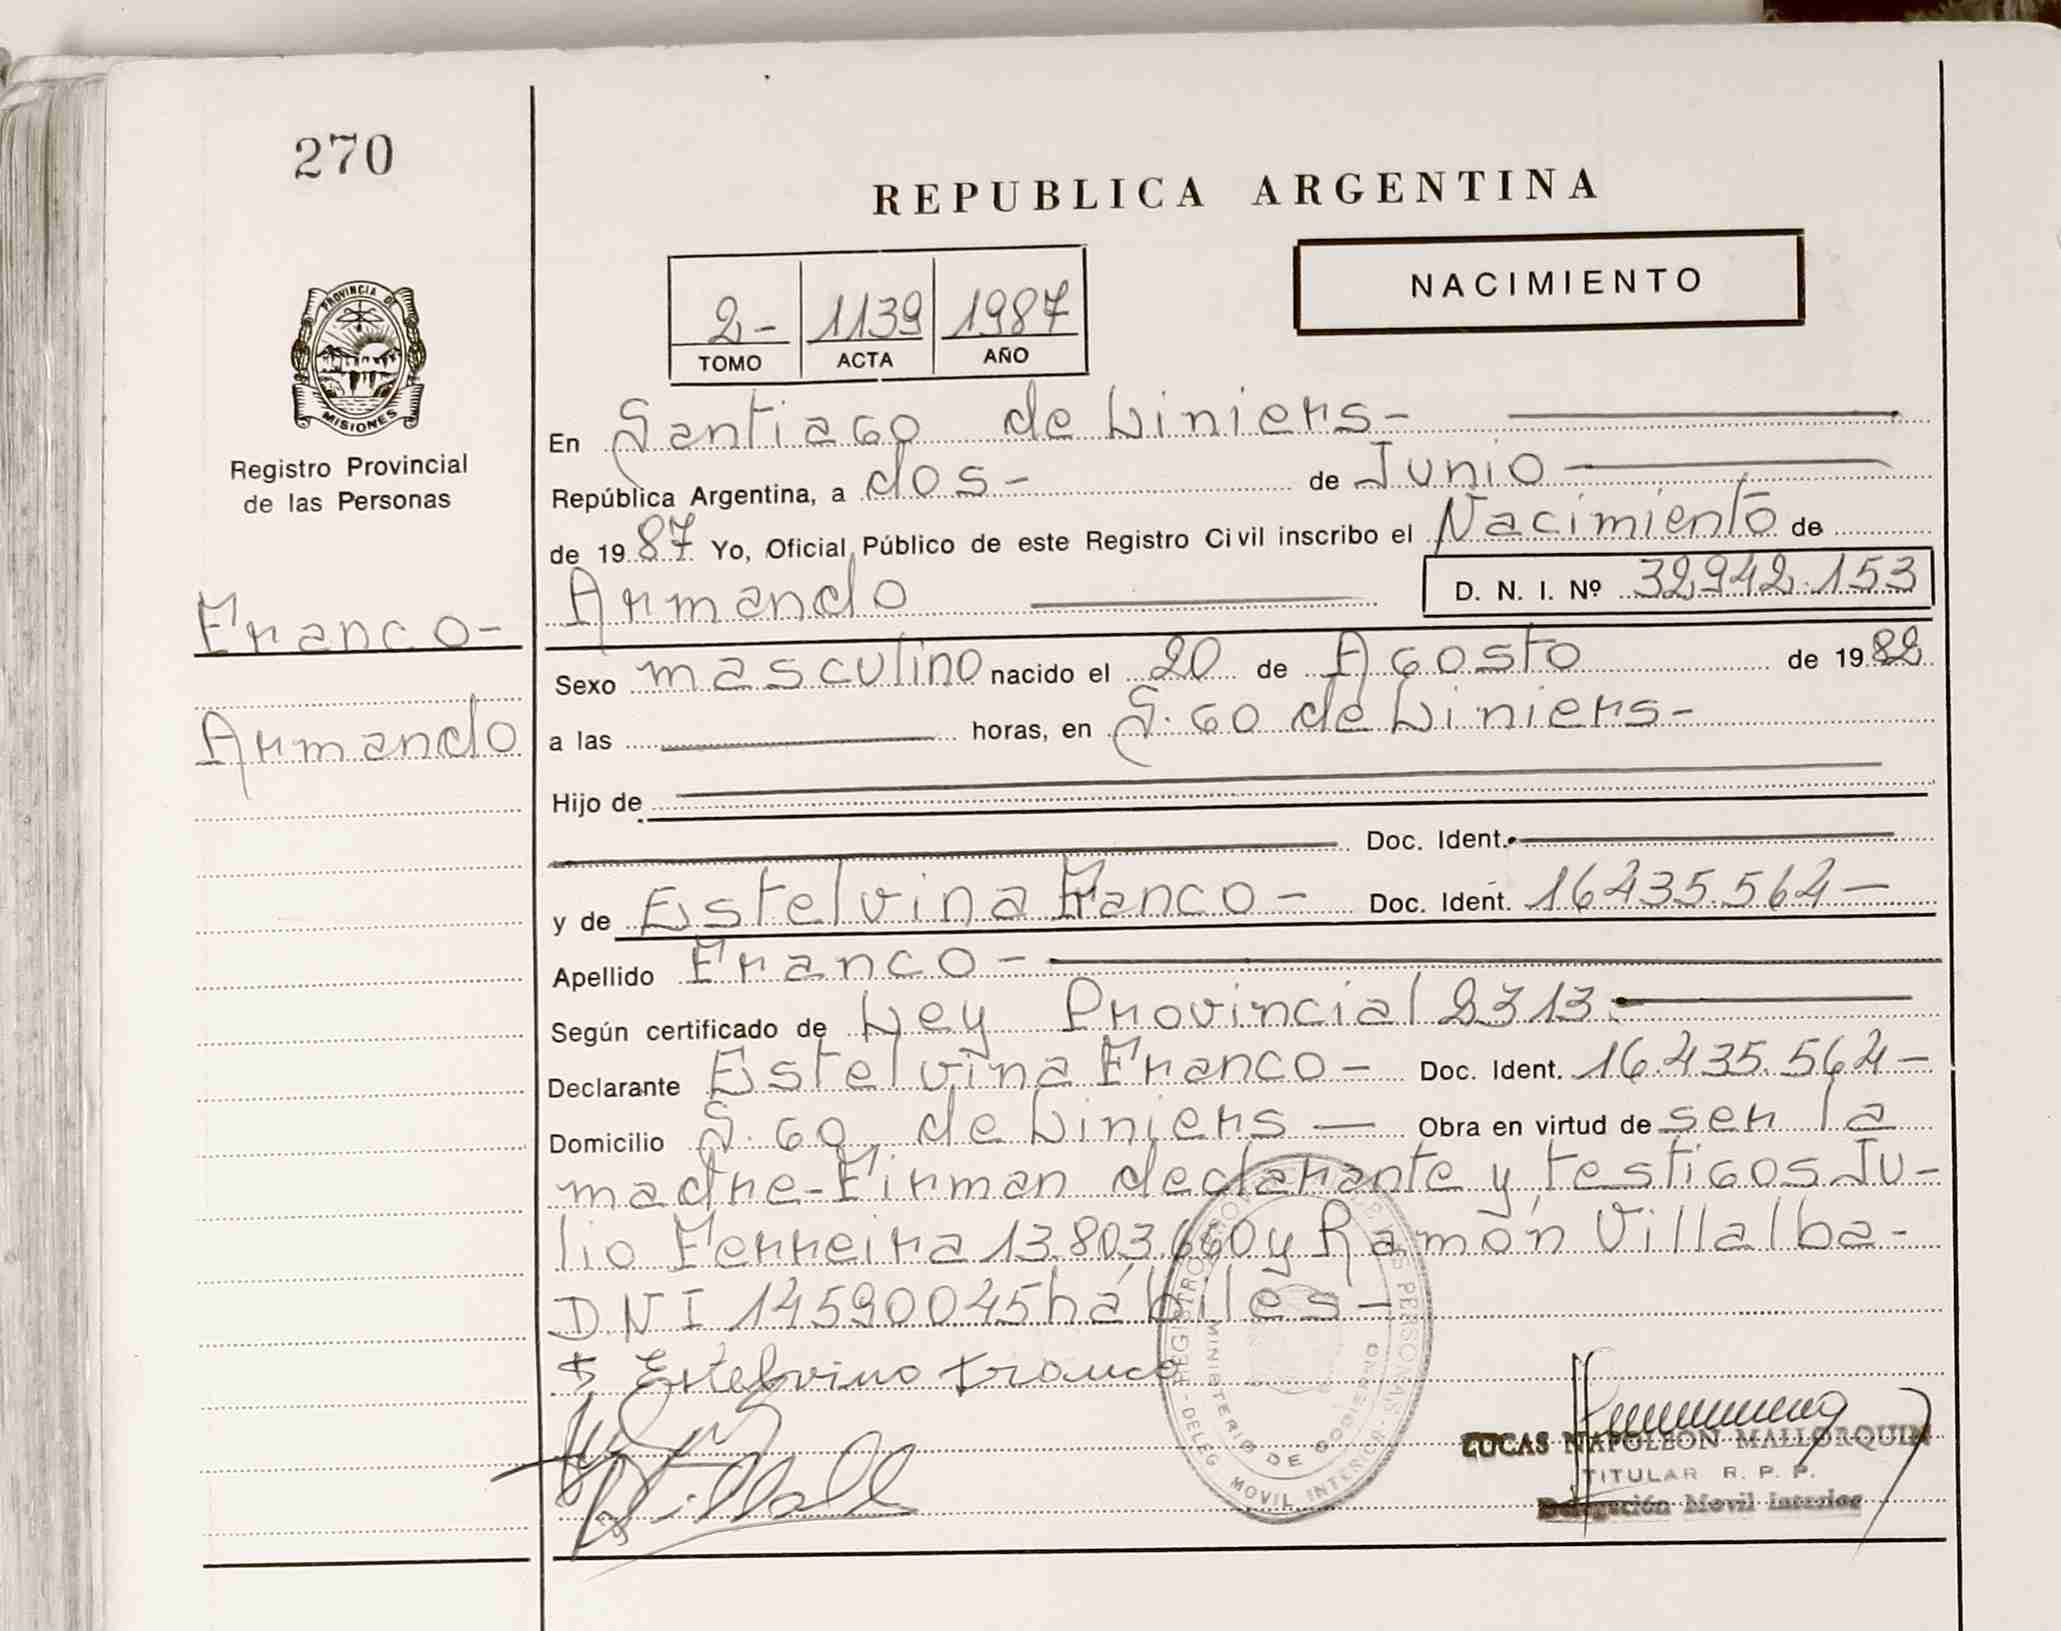 270
REPUBLICA ARGENTINA
NACIMIENTO
2- 1139 1987
TOMO ACTA AÑO
PROVINCIA DE MISIONES
Registro Provincial
de las Personas
En Santiago de Liniers-
República Argentina, a dos- de Junio
de 1987 Yo, Oficial Público de este Registro Civil inscribo el Nacimiento de
Franco- Armando D. N. I. Nº 32.942.153
Sexo masculino nacido el 20 de Agosto de 1982
Armando a las horas, en S.go de Liniers-
Hijo de
Doc. Ident.
y de Estelvina Franco- Doc. Ident. 16435.564-
Apellido Franco-
Según certificado de Ley Provincial 2313.
Declarante Estelvina Franco- Doc. Ident. 16.435.564-
Domicilio S.go. de Liniers- Obra en virtud de ser la
madre-Firman declarante y testigos Ju-
lio Ferreira 13.803.660 y Ramón Villalba-
DNI 14590045 hábiles-
Estelvino franco
REGISTRO PERSONAS - DELEG. MOVIL INTERIOR
MINISTERIO DE GOBIERNO
LUCAS NAPOLEON MALLORQUIN
TITULAR R. P. P.
Delegación Movil Interior